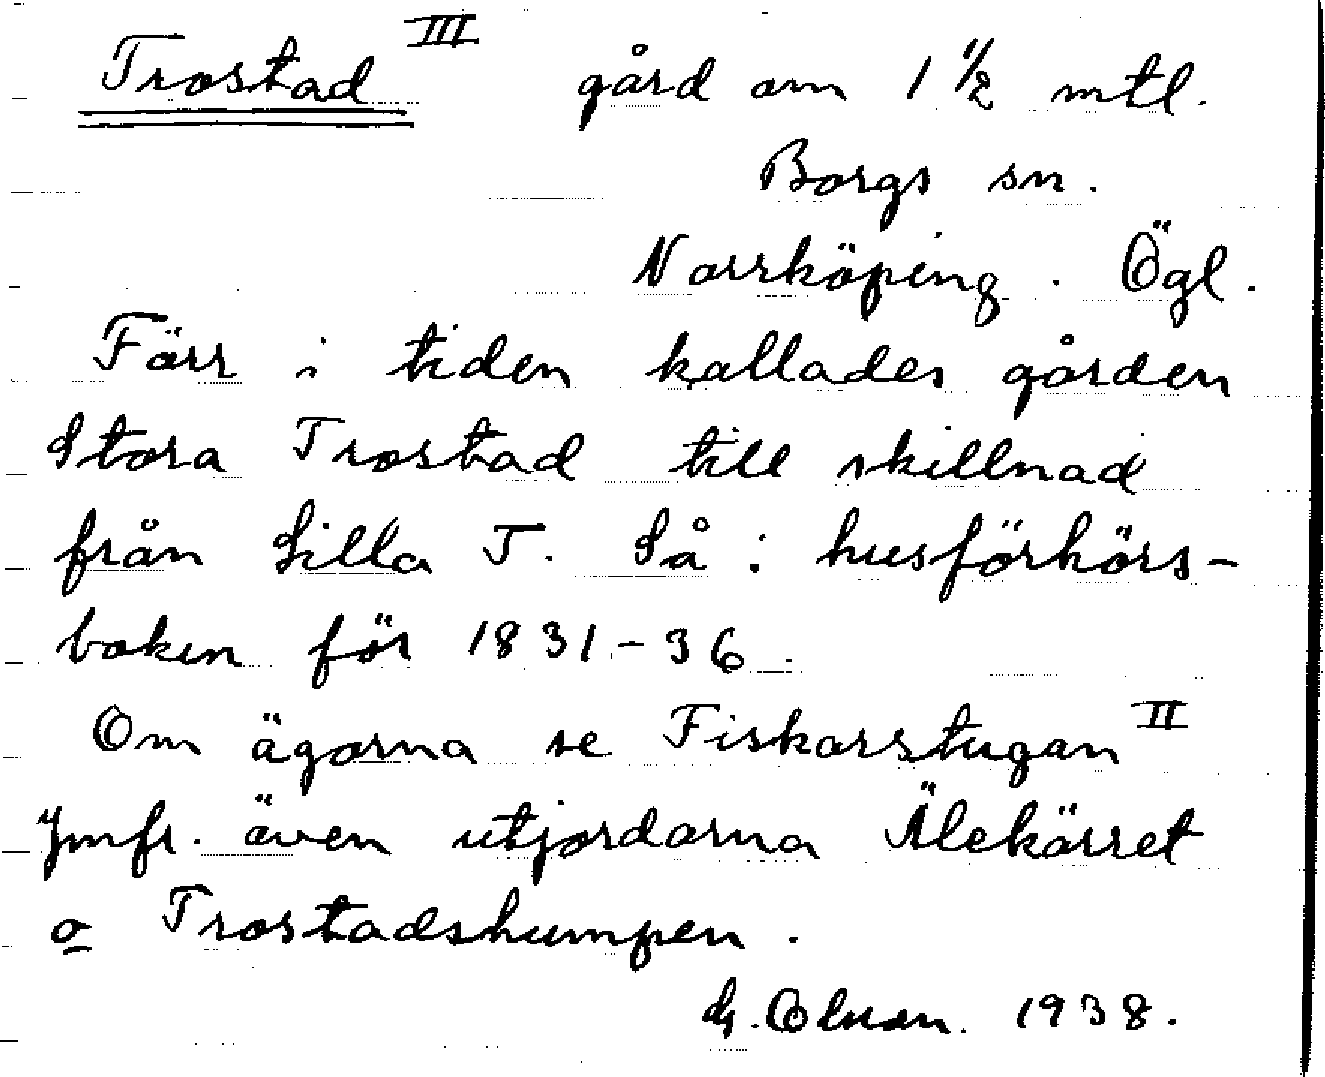 Trostad III gård om 1 1/2 mtl.
Borgs sn.
Norrköping. Ögl.
Förr i tiden kallades gården
Stora Trostad till skillnad
från Lilla T. Så i husförhörs-
boken för 1831-36.
Om ägorna se Fiskarstugan II
Jmfr. även utjordarna Älekärret
o Trostadshumpen.
G. Olsson. 1938.